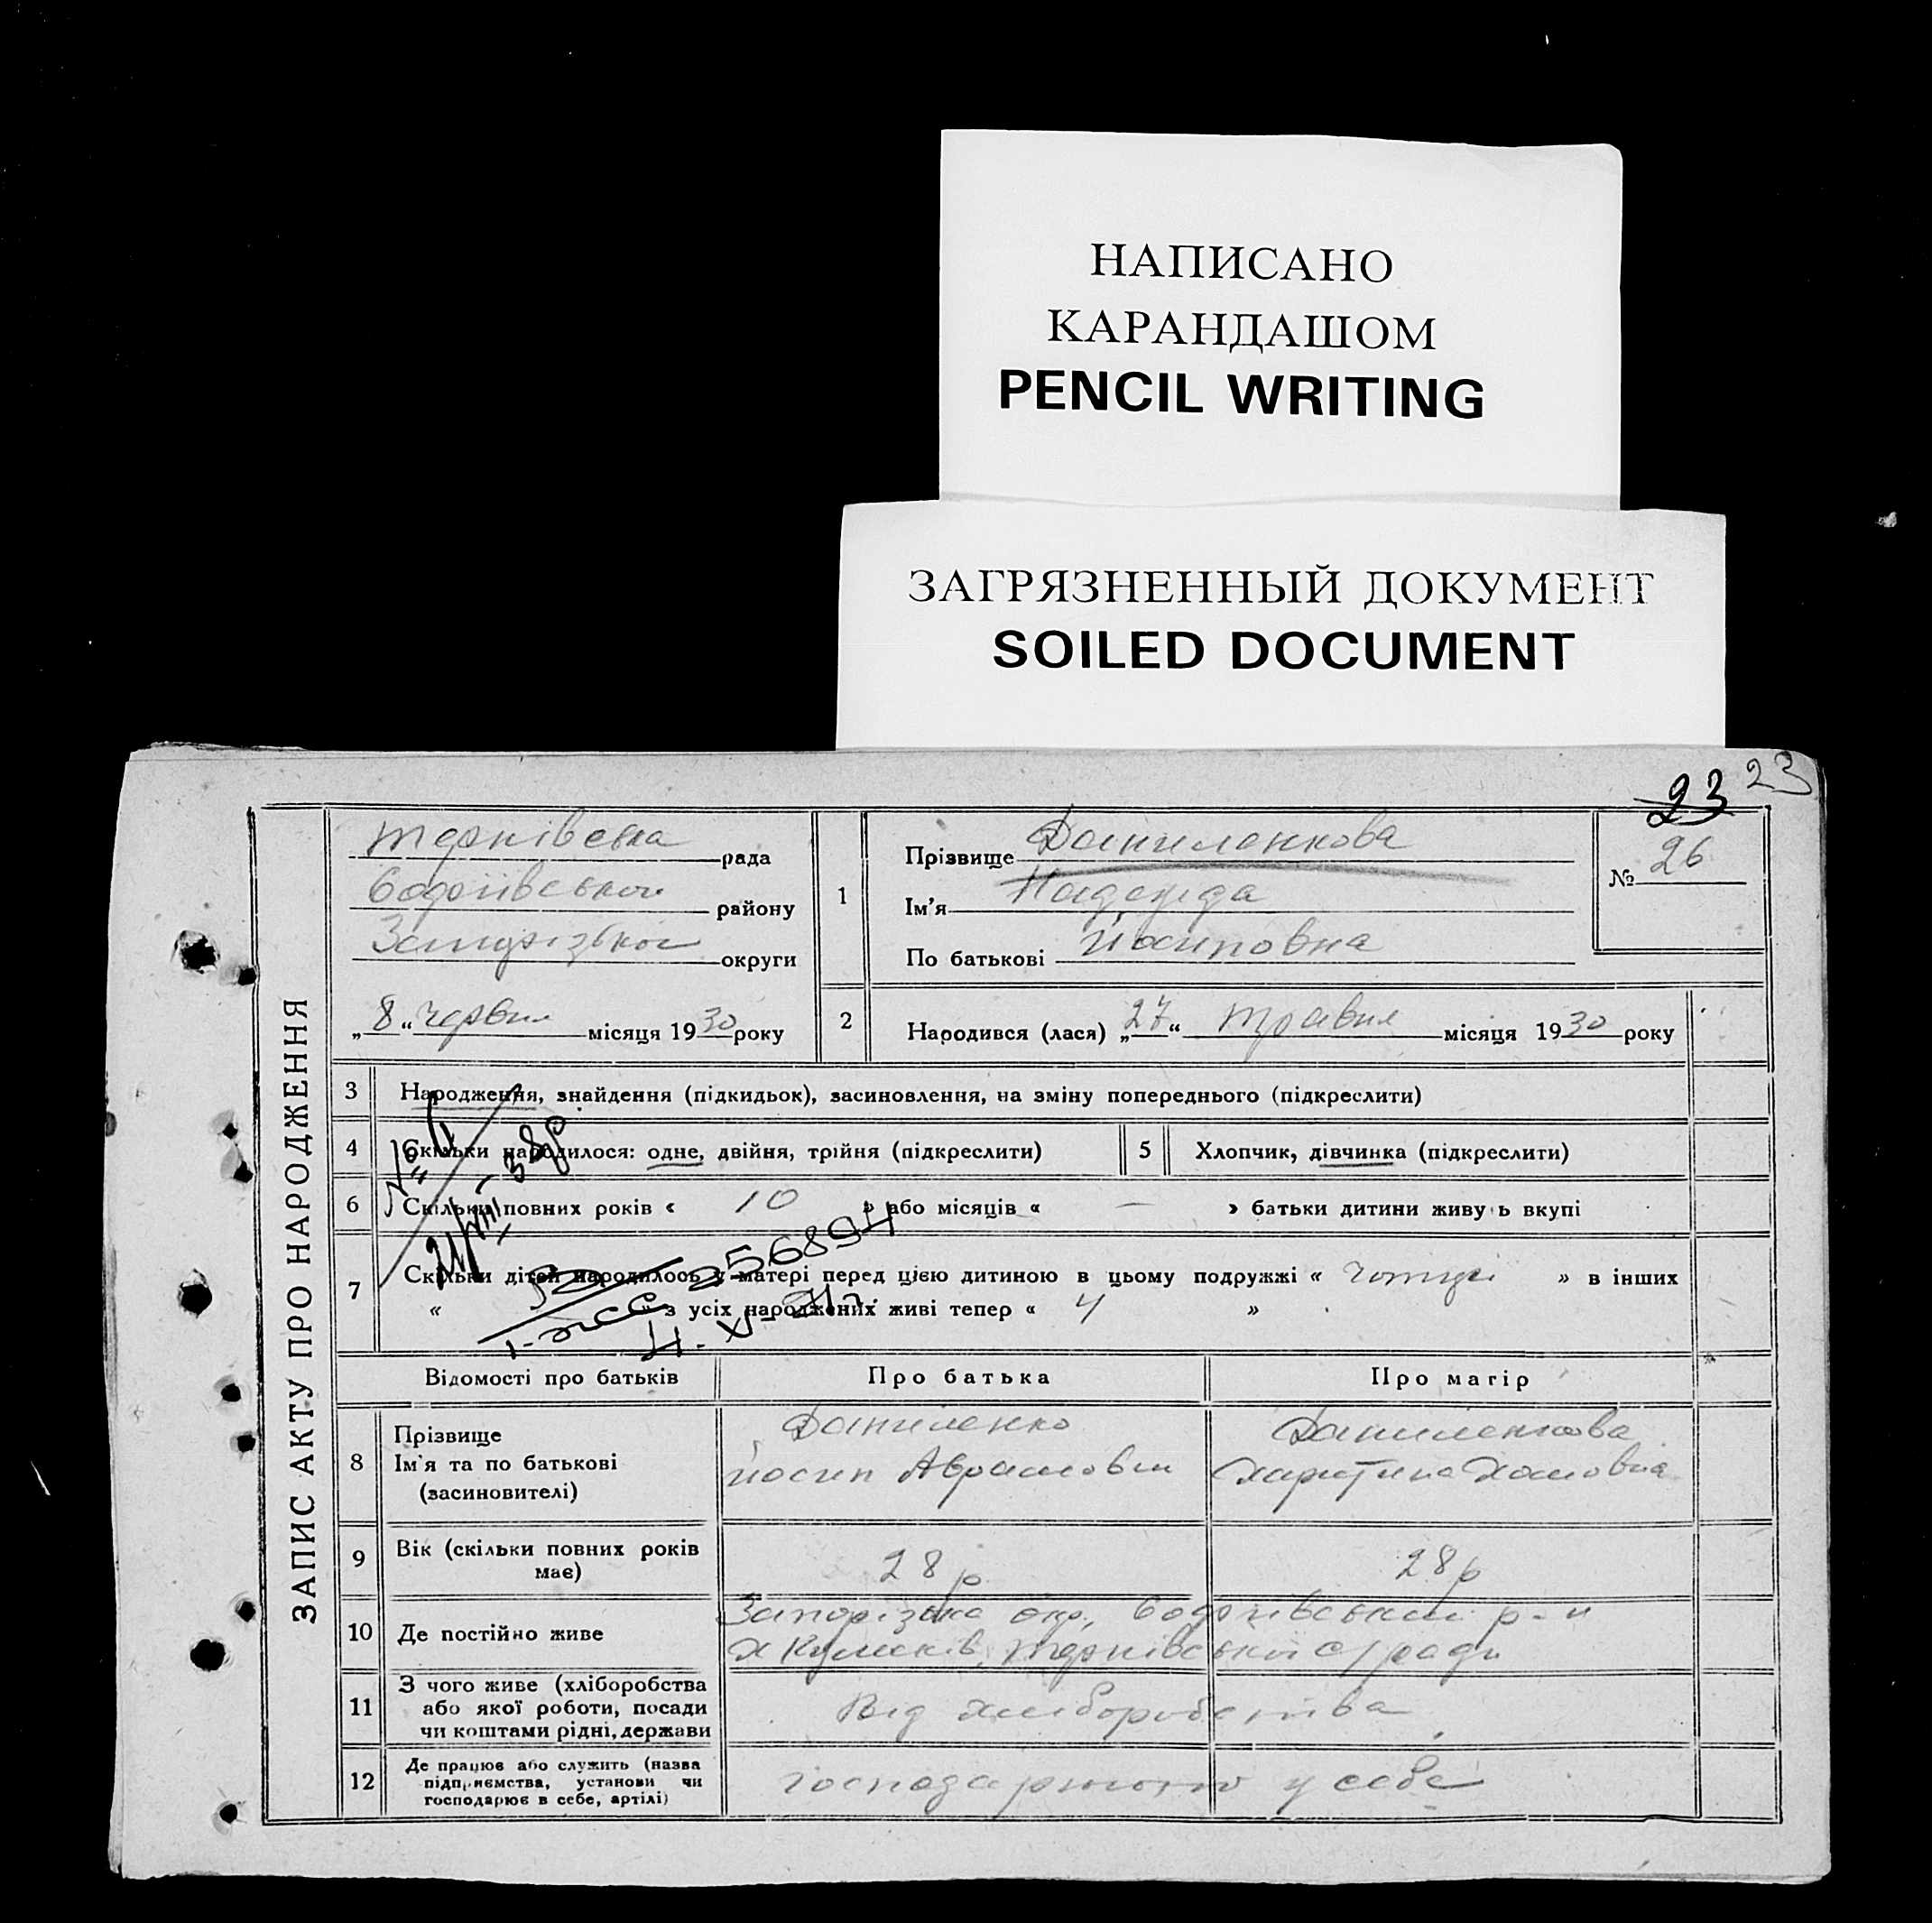 НАПИСАНО
КАРАНДАШОМ
PENCIL WRITING
ЗАГРЯЗНЕННЫЙ ДОКУМЕНТ
SOILED DOCUMENT
23 23
ЗАПИС АКТУ ПРО НАРОДЖЕННЯ
Тернівська рада
району
Запорізької округи
„8“ червня місяця 1930 року
1
Прізвище Даниленкова
Ім'я Надежда
По батькові Йосиповна
№ 26
2
Народився (лася) „27“ травня місяця 1930 року
3 Народження, знайдення (підкидьок), засиновлення, на зміну попереднього (підкреслити)
4 Скільки народилося: одне, двійня, трійня (підкреслити)
5 Хлопчик, дівчинка (підкреслити)
6 Скільки повних років « 10 » або місяців « — » батьки дитини живуть вкупі
7 Скільки дітей народилось у матері перед цією дитиною в цьому подружжі « чотири » в інших
« » з усіх народжених живі тепер « 4 »
256894
Відомості про батьків
Про батька
Про матір
8
Прізвище
Ім'я та по батькові
(засиновителі)
Даниленко
Йосип Аврамович
Даниленкова
Харитина Хомовна
9 Вік (скільки повних років
має)
28 р
28 р
10 Де постійно живе
Запорізька окр., р-н
х Тернівської с/ради
11
З чого живе (хліборобства
або якої роботи, посади
чи коштами рідні, держави
Від хліборобства
12
Де працює або служить (назва
підприємства, установи чи
господарює в себе, артілі)
господарюють у себе